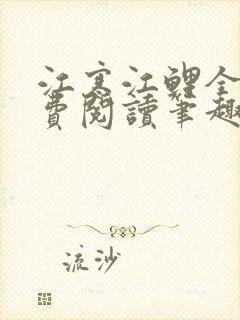 江寒江鲤全
費閱讀筆趣
流沙